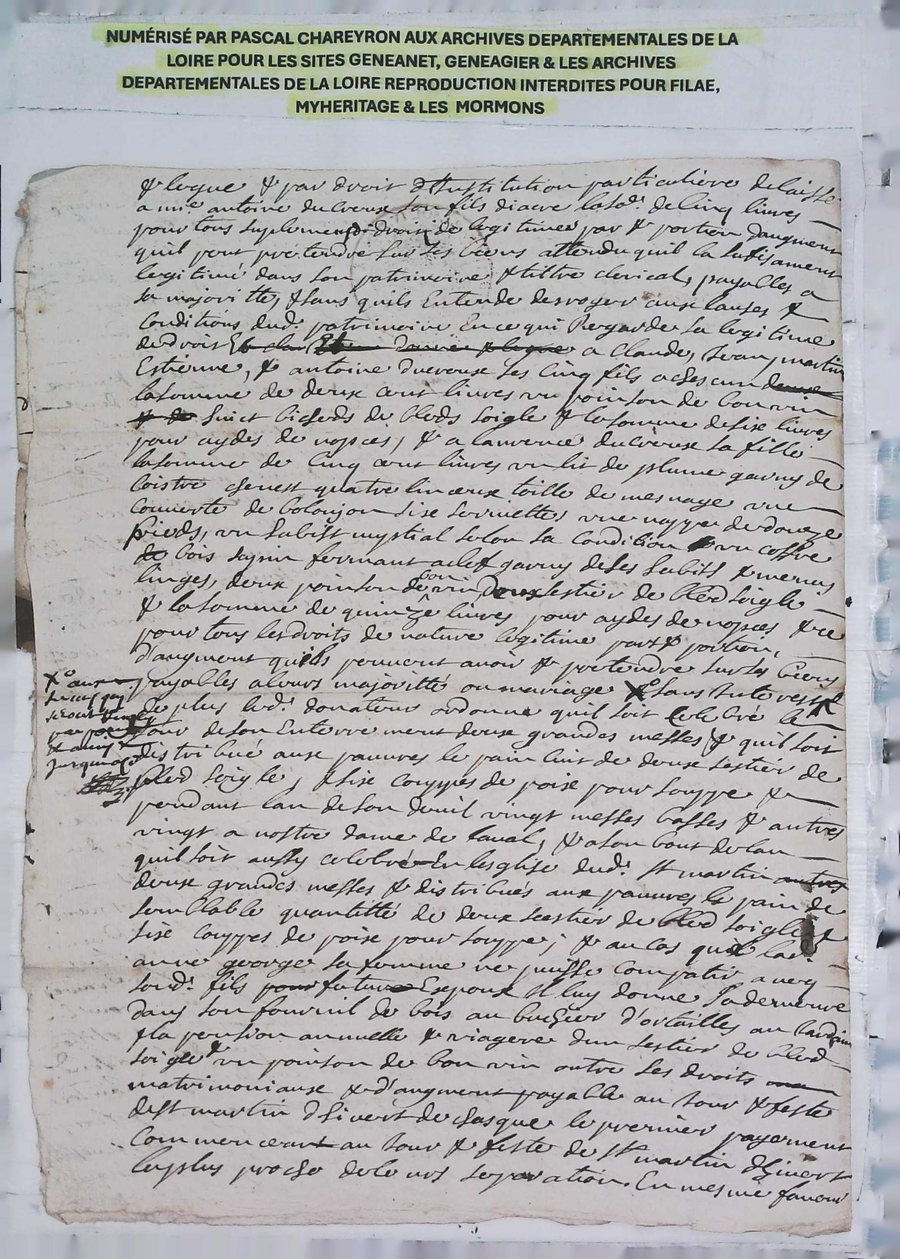 NUMÉRISÉ PAR PASCAL CHAREYRON AUX ARCHIVES DEPARTEMENTALES DE LA
LOIRE POUR LES SITES GENEANET, GENEAGIER & LES ARCHIVES
DEPARTEMENTALES DE LA LOIRE REPRODUCTION INTERDITES POUR FILAE,
MYHERITAGE & LES MORMONS
& legue & par droit d'Institution particuliere delaisse
a mre antoine ducreux son fils diacre lasod. de cinq livres
pour tous suplement droit de legitime par & portion daugment
quil peut pretendre sur ses biens attendu quil la sufisament
legitimé dans son patrimoine & tiltre clerical, payables a
sa majoritte, & sans quils Entende desroger aux clauses &
Conditions dud. patrimoine En ce qui Regarde sa legitime
dedroit a Claude, Jean, martin
Estienne, & antoine ducreux ses Cinq fils a chescun
lasomme de deux cent livres un poinson de bon vin
huict bicheds de bleds soigle & lasomme de six livres
pour aydes de nopces, & a laurence ducreux sa fille
lasomme de Cinq cent livres un lit de plume garny de
Coistre chevest quatre linceux toille de mesnage une
Couverte de six serviettes, une nappe de douze
pieds, un habist nuptial selon sa Condition & un coffre
bois sapin fermant a clef garny de ses habist & menus
linges, deux poinson de bon vin Deux sestier de bled soigle
& lasomme de quinze livres pour aydes de nopces & ce
pour tous les droits de nature legitime part & portion,
d'augment quils peuvent avoir & pretendre sur ses biens
payables a leurs majoritté ou mariage X sans Interest &
de plus led. donateur ordonne quil soit Celebré le
Jour de son Enterrement deux grandes messes & quil soit
distribué aux pauvres le pain cuit de deux sestier de
bled soigle, & six couppes de poix pour souppe &
pendant lan de son deuil vingt messes basses & autres
vingt a nostre dame de laval, & a son bout de lan
quil soit aussy celebré En lesglise dud. st martin
deux grandes messes & distribués aux pauvres le pain de
semblable quantitté de deux sestier de bled soigle &
six couppes de poix pour souppe; & au cas que lad.
anne george sa femme ne puisse compatir avec
sond. fils futur Espoux Il luy donne sa demeure
dans son fournil de bois au d'ortailles au Jardin
& la pension annuelle & viagere dun sestier de bled
soigle & un poinson de bon vin outre ses droits
matrimoniaux & d'augment payable au Jour & feste
de st martin d'hivert de chasque le premier payement
Commenceant au Jour & feste de st martin d'hivert
le plus proche de leurs separation. En mesme faveur
X aux